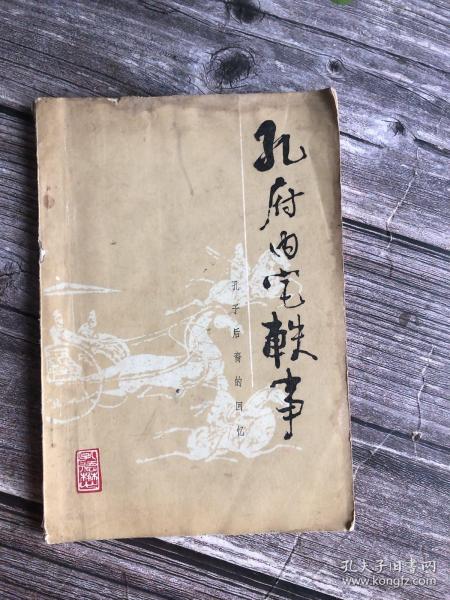 孔府内宅轶事
孔子后裔的回忆
孔夫子旧书网
www.kongfz.com